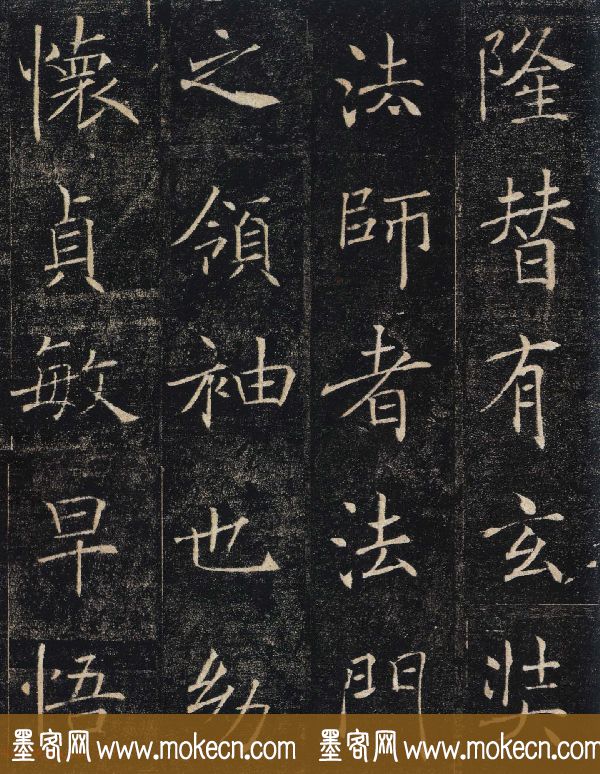 隆替有玄奘
法師者法門
之領袖也幼
懷貞敏早悟
墨客网 www.mokecn.com 墨客网 www.mokecn.com